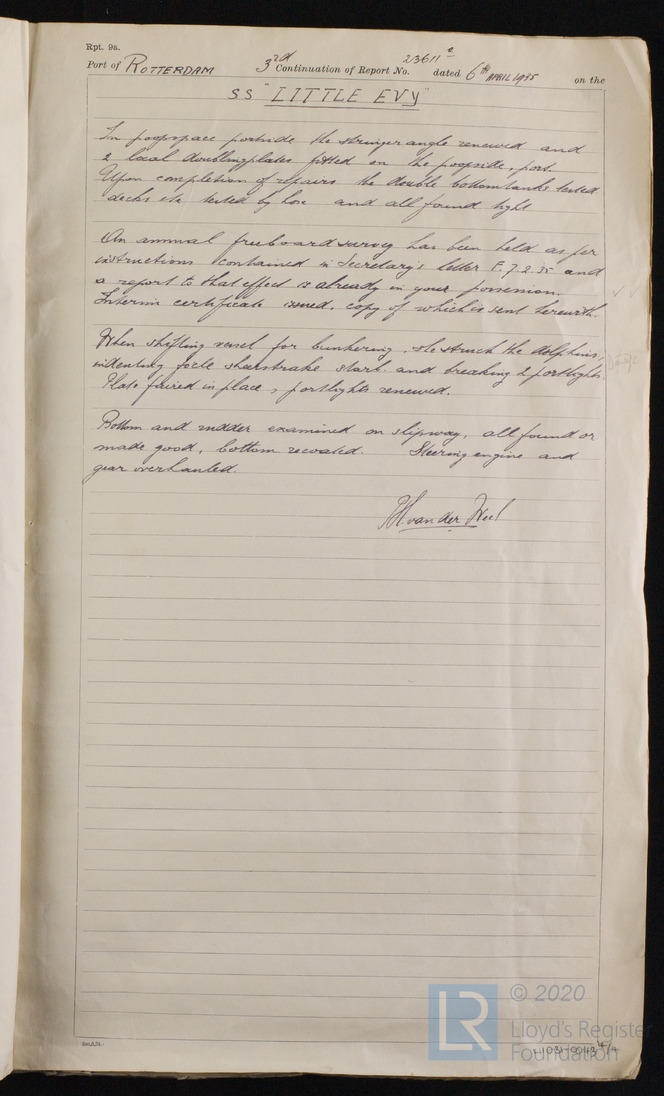 Rpt. 9a.
Port of ROTTERDAM 3rd Continuation of Report No. 23611a dated 6th APRIL 1935 on the
SS "LITTLE EVY"
In poopspace portside the stringer angle renewed and
2 local doublingplates fitted on the poopside, port.
Upon completion of repairs the double bottomtanks tested
decks etc tested by hose and all found tight
An annual freeboardsurvey has been held as per
instructions contained in Secretary's letter F. 7.2.35 and
a report to that effect is already in your possession.
Interim certificate issued, copy of which is sent herewith.
When shifting vessel for bunkering, she struck the dolphins,
indenting focle sheerstrake starb. and breaking 2 portlights
Plate faired in place, portlights renewed.
Bottom and rudder examined on slipway, all found or
made good, bottom recoated. Steering engine and
gear overhauled.
van der
© 2020
LR
Lloyd's Register
Foundation